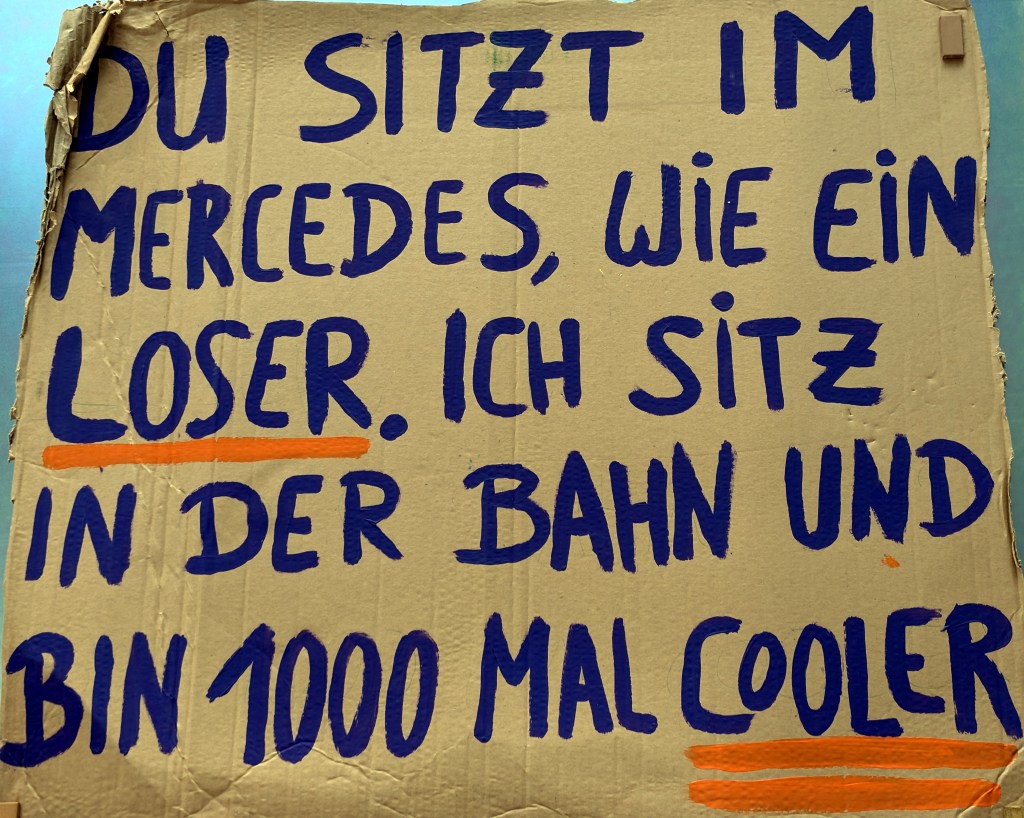 DU SITZT IM
MERCEDES, WIE EIN
LOSER. ICH SITZ
IN DER BAHN UND
BIN 1000 MAL COOLER